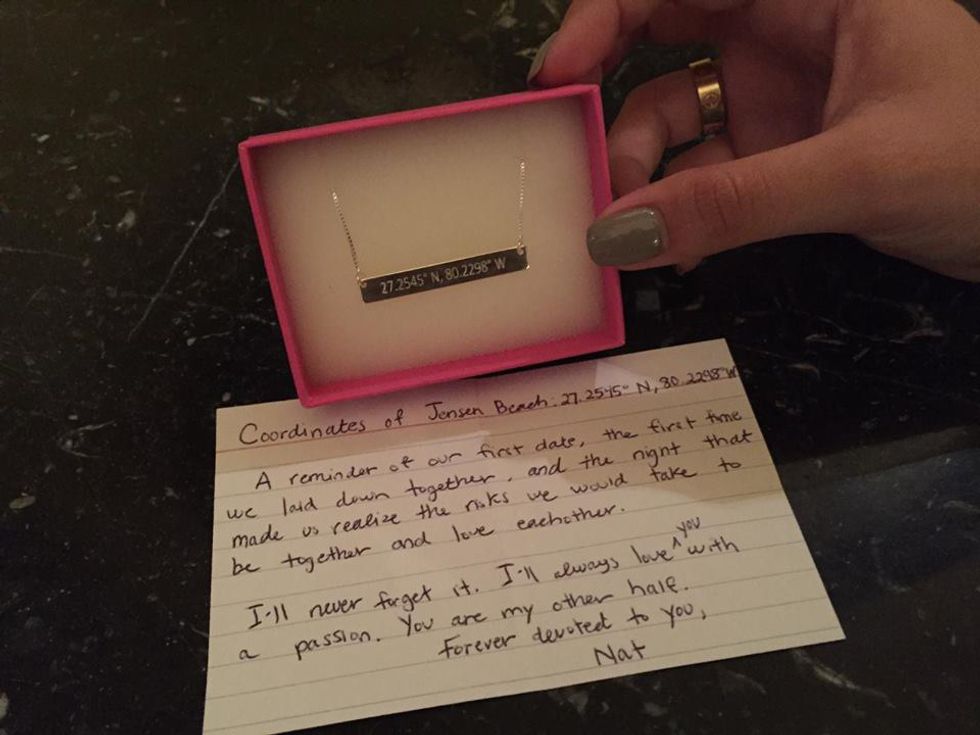 27.2545° N, 80.2298° W
Coordinates of Jensen Beach: 27.2545° N, 80.2298° W
A reminder of our first date, the first time
we laid down together, and the night that
made us realize the risks we would take to
be together and love eachother.
I'll never forget it. I'll always love you with
a passion. You are my other half.
Forever devoted to you,
Nat